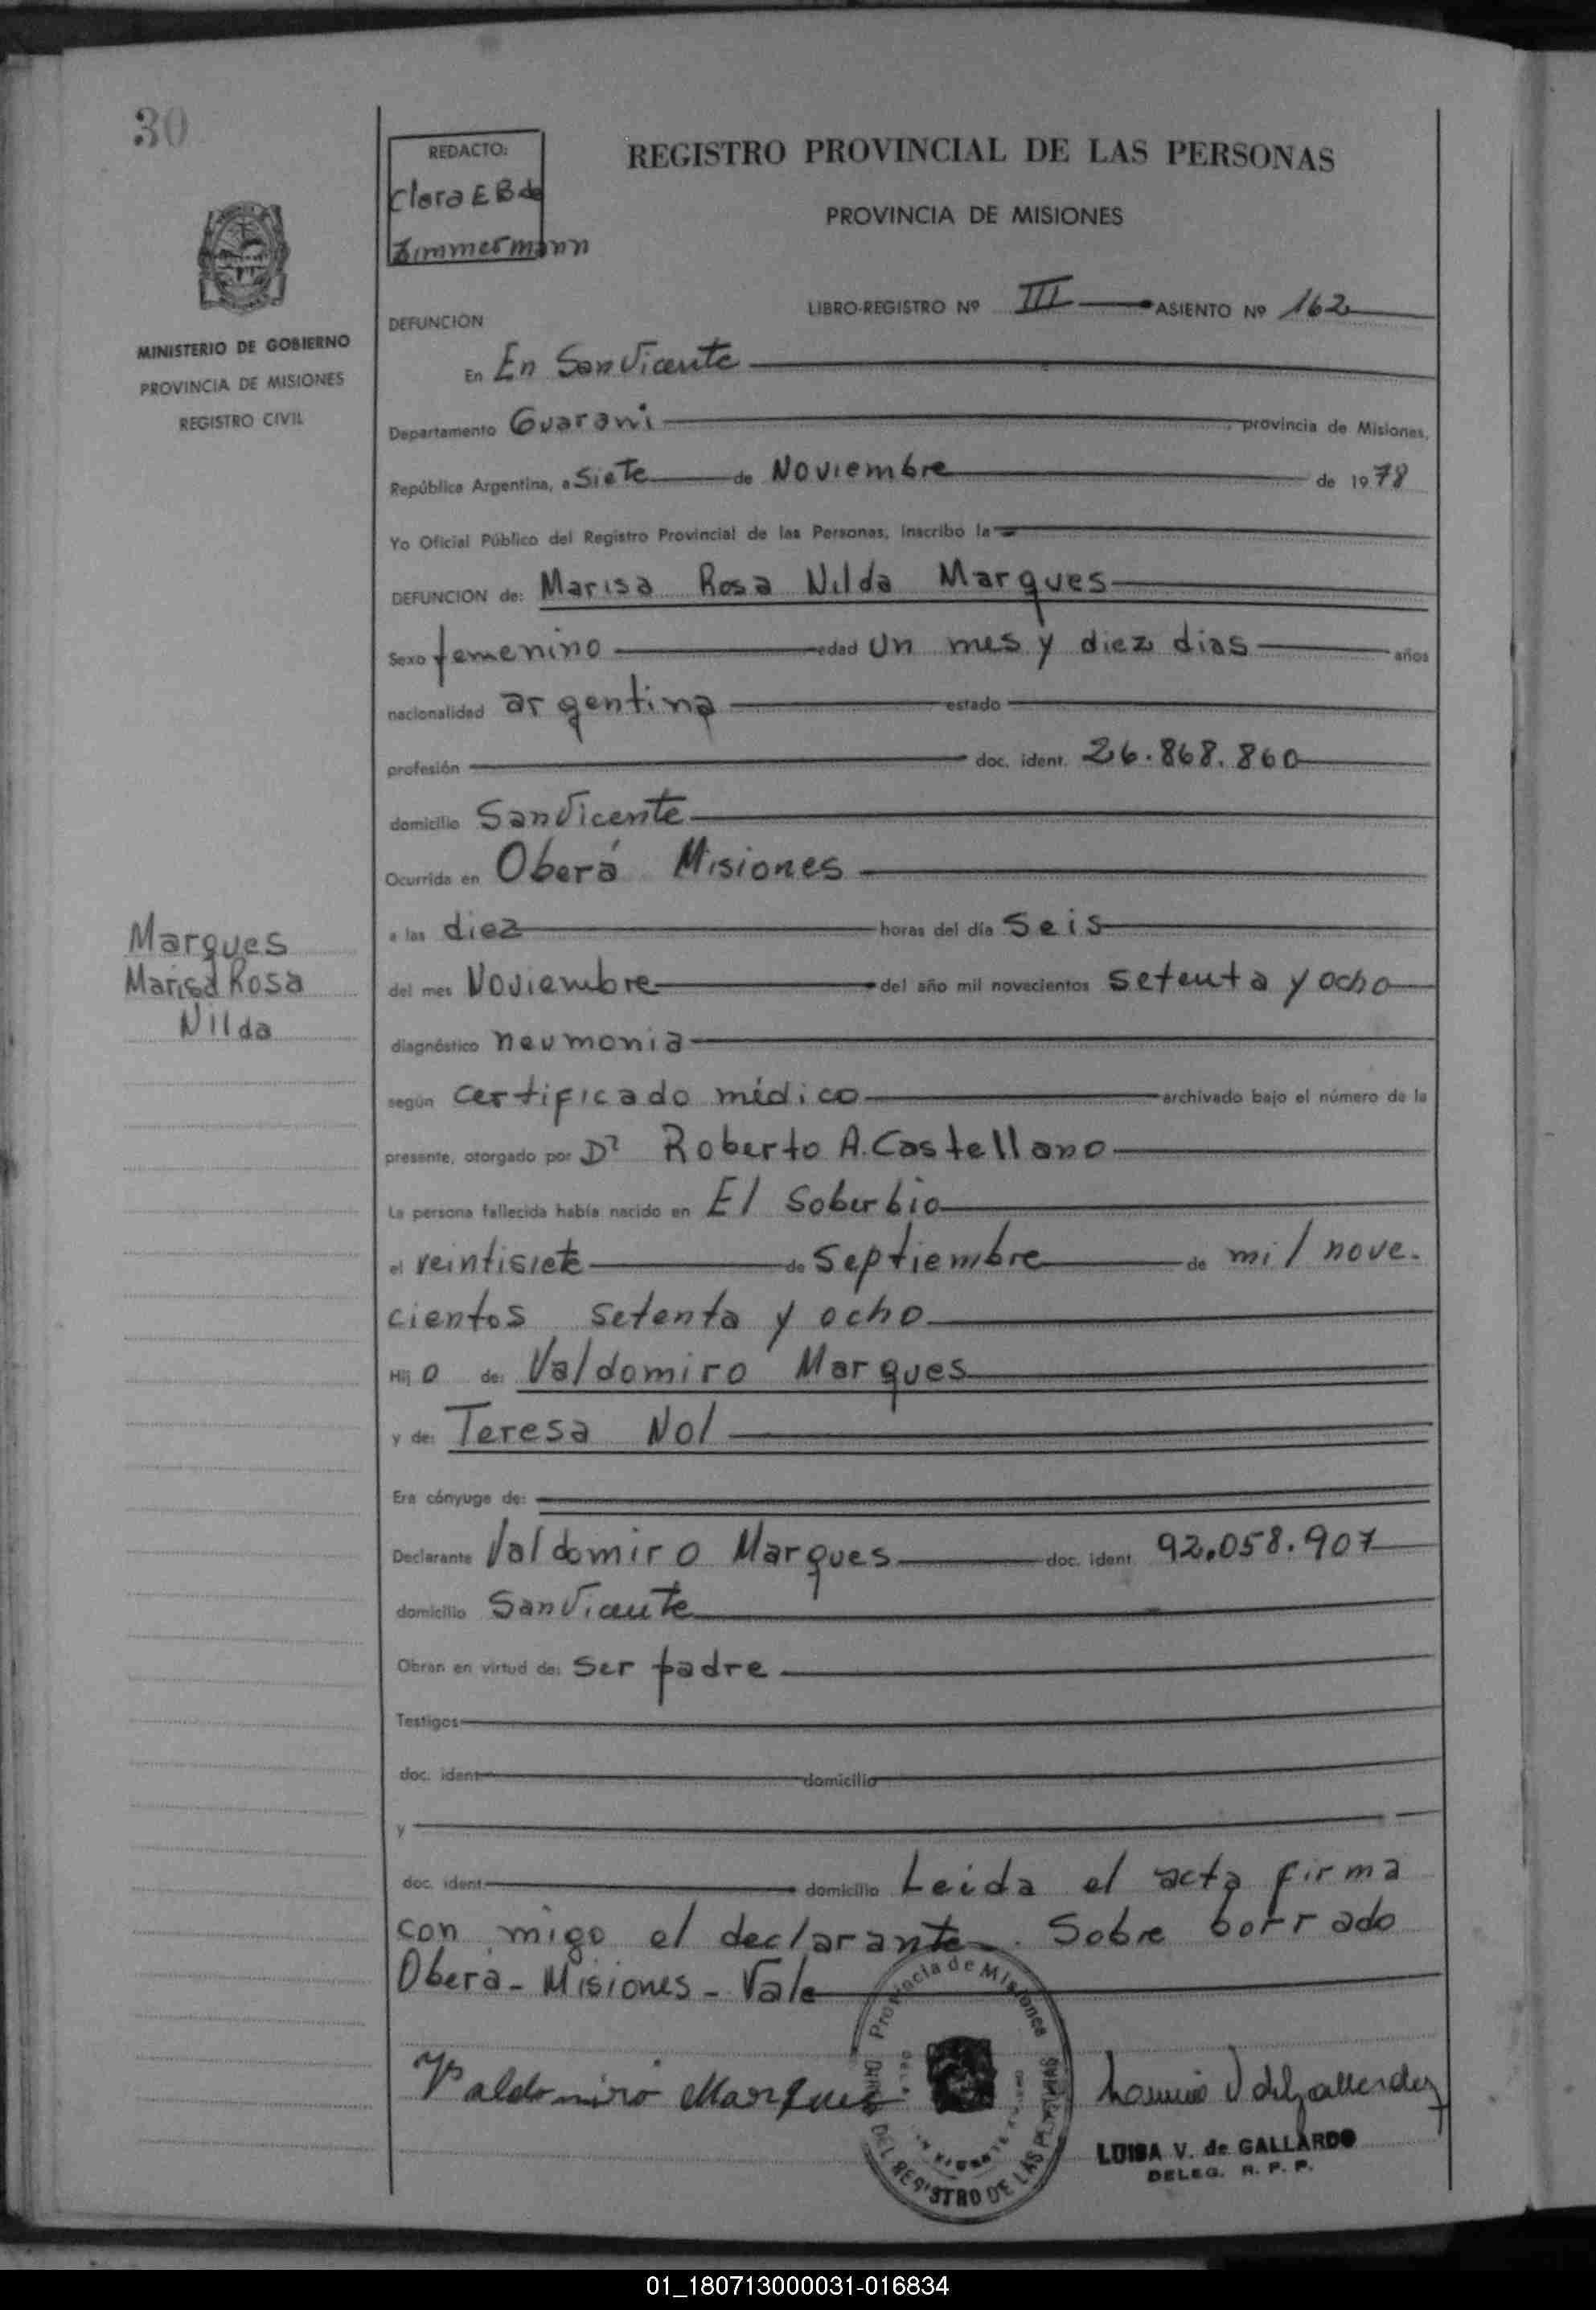 30
REDACTO:
Clara E B de
Zimmermann
REGISTRO PROVINCIAL DE LAS PERSONAS
PROVINCIA DE MISIONES
MINISTERIO DE GOBIERNO
PROVINCIA DE MISIONES
REGISTRO CIVIL
LIBRO-REGISTRO Nº III ASIENTO Nº 162
DEFUNCION
En En San Vicente
Departamento Guarani provincia de Misiones,
República Argentina, a Siete de Noviembre de 1978
Yo Oficial Público del Registro Provincial de las Personas, inscribo la
DEFUNCION de: Marisa Rosa Nilda Marques
Sexo femenino edad Un mes y diez dias años
nacionalidad argentina estado
profesión doc. ident. 26.868.860
domicilio San Vicente
Ocurrida en Oberá Misiones
Marques
Marisa Rosa
Nilda
a las diez horas del día Seis
del mes Noviembre del año mil novecientos setenta y ocho
diagnóstico neumonia
según certificado médico archivado bajo el número de la
presente, otorgado por Dr Roberto A. Castellano
La persona fallecida había nacido en El Soberbio
el veintisiete de Septiembre de mil nove-
cientos setenta y ocho
Hij o de: Valdomiro Marques
y de: Teresa Nol
Era cónyuge de:
Declarante Valdomiro Marques doc. ident. 92.058.907
domicilio San Vicente
Obran en virtud de: Ser padre
Testigos
doc. ident domicilio
y
doc. ident domicilio Leida el acta firma
con migo el declarante. Sobre borrado
Oberá - Misiones - Vale
Provincia de Misiones
DEL REGISTRO DE LAS PERSONAS
Valdomiro Marques
LUISA V. de GALLARDO
DELEG. R. P. P.
01_180713000031-016834